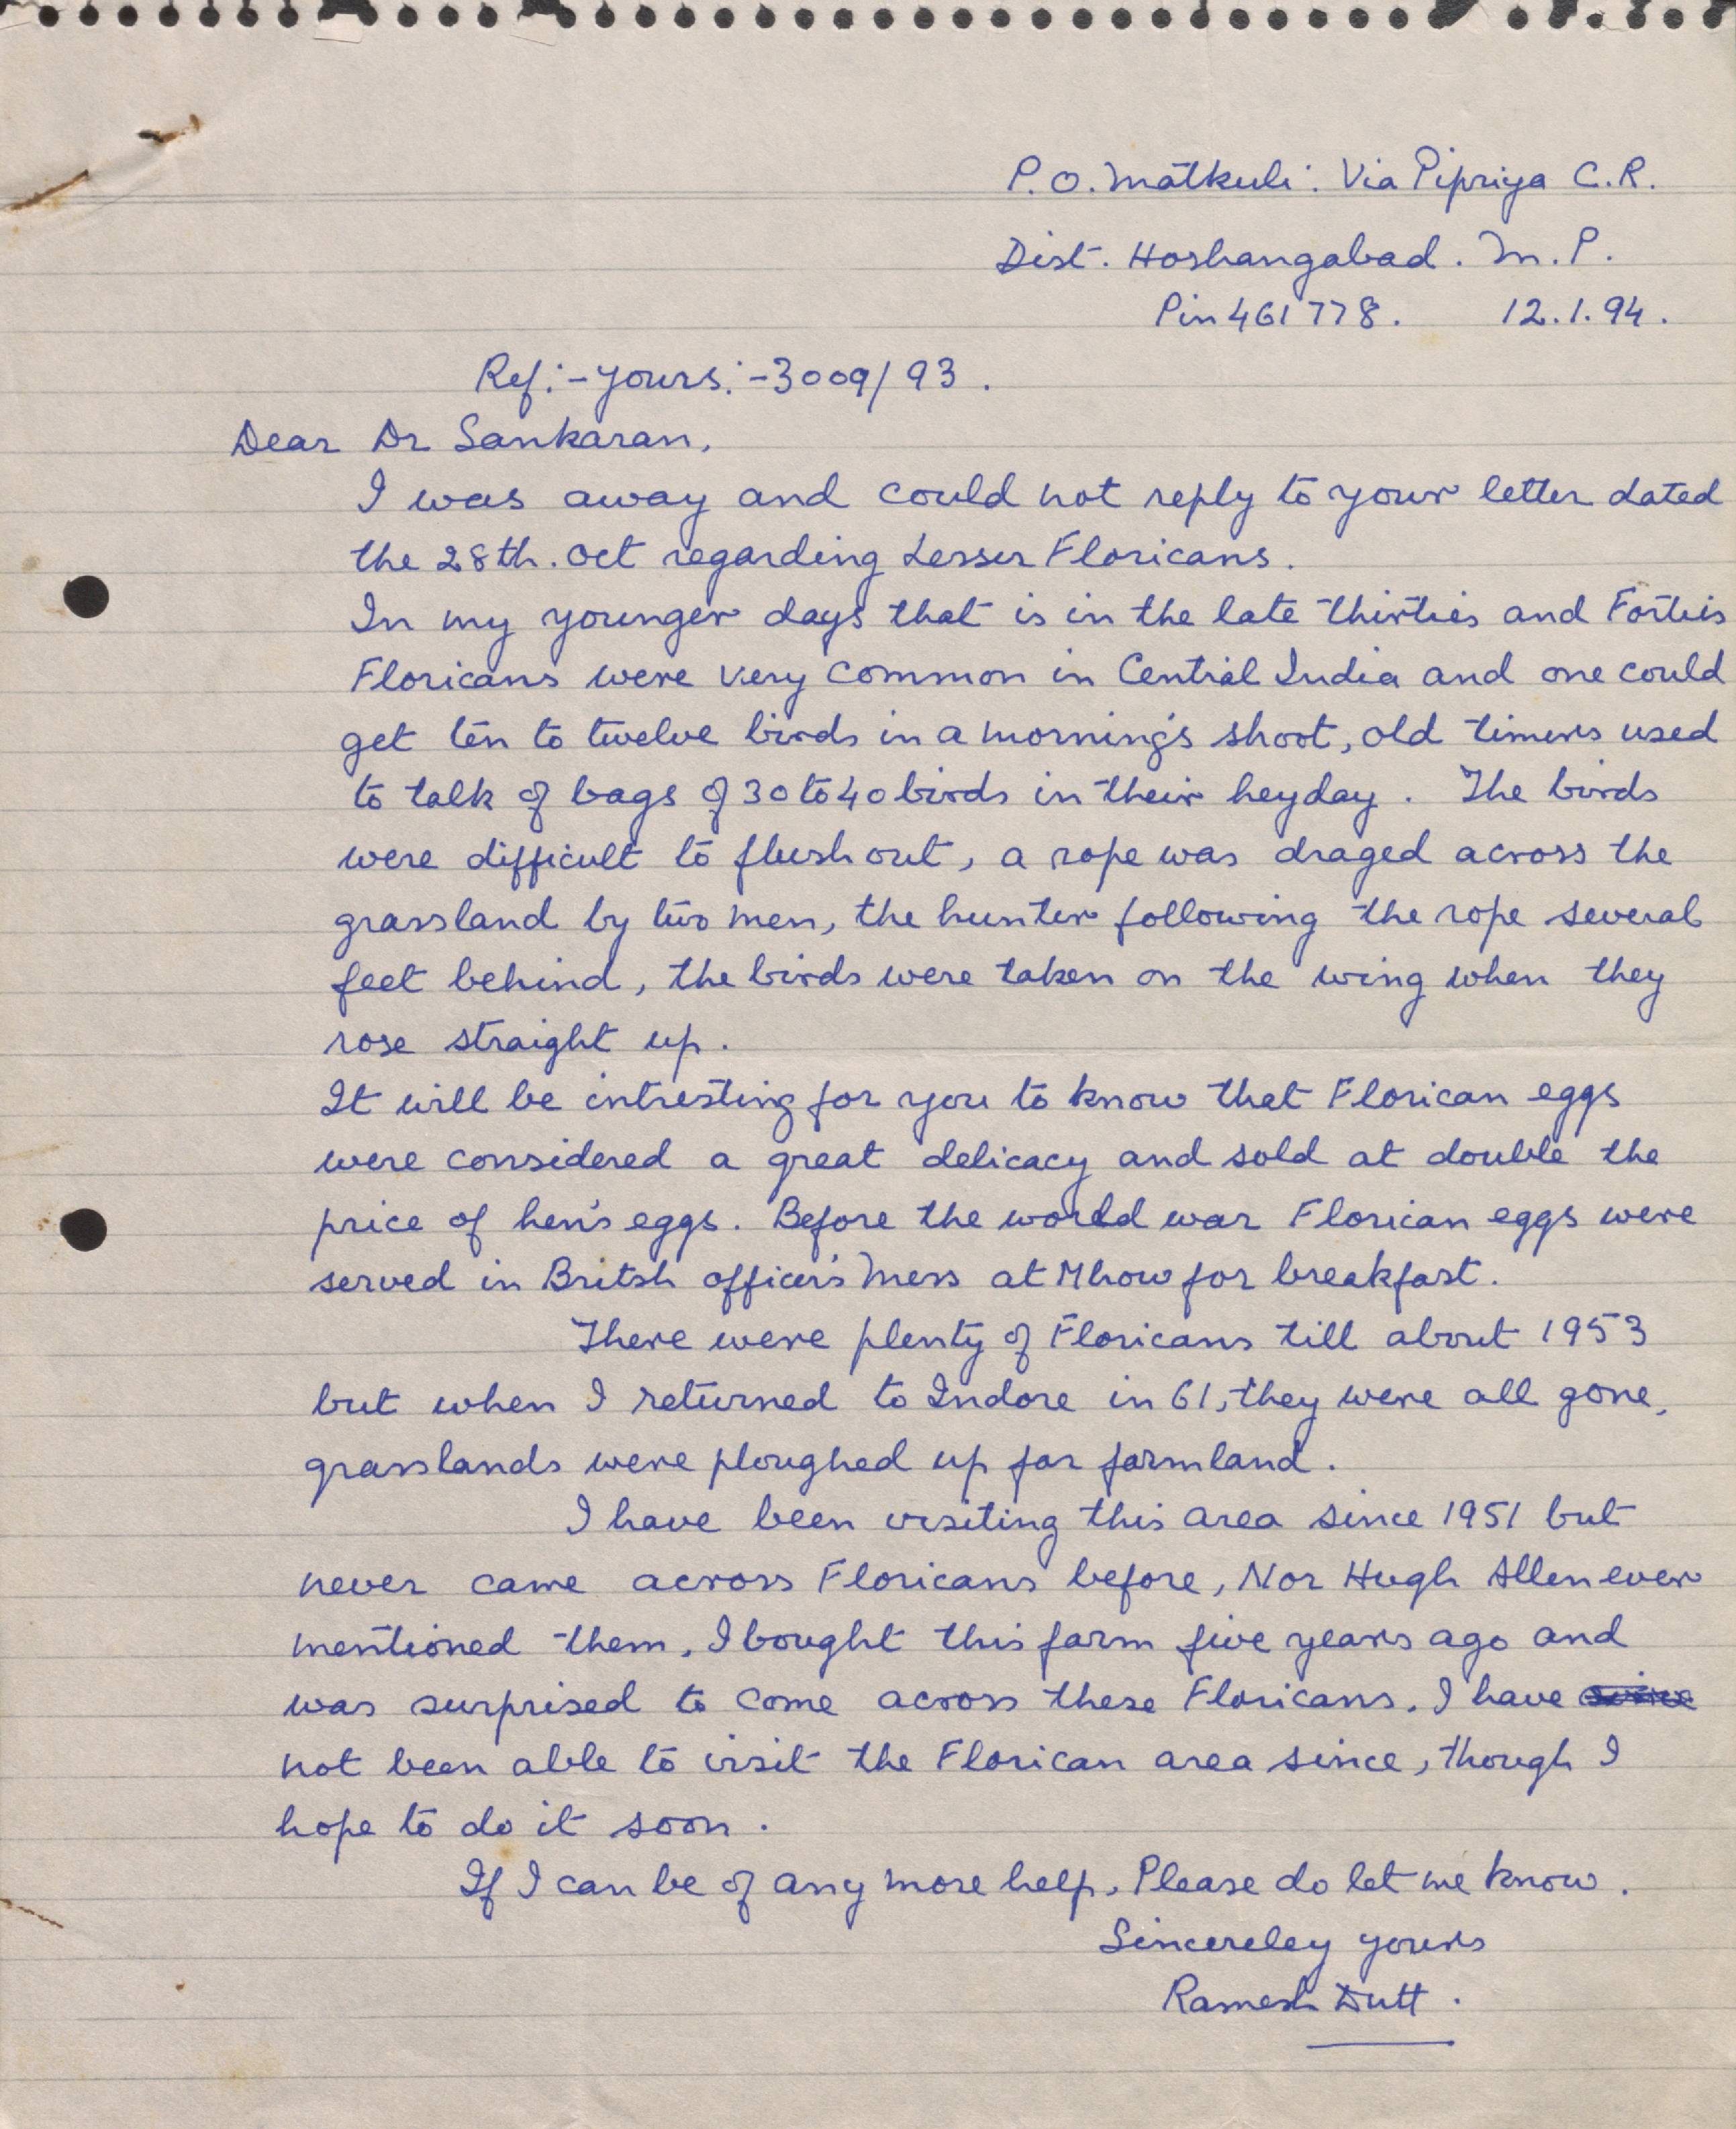 P.O. Matkuli: Via Pipriya C.R.
Dist. Hoshangabad. M.P.
Pin 461778. 12.1.94.
Ref:- yours:- 3009/93.
Dear Dr Sankaran,
I was away and could not reply to your letter dated
the 28th. Oct regarding Lesser Floricans.
In my younger days that is in the late thirties and Forties
Floricans were very common in Central India and one could
get ten to twelve birds in a morning's shoot, old timers used
to talk of bags of 30 to 40 birds in their heyday. The birds
were difficult to flush out, a rope was draged across the
grassland by two men, the hunter following the rope several
feet behind, the birds were taken on the wing when they
rose straight up.
It will be intresting for you to know that Florican eggs
were considered a great delicacy and sold at double the
price of hen's eggs. Before the world war Florican eggs were
served in Britsh officer's Mess at Mhow for breakfast.
There were plenty of Floricans till about 1953
but when I returned to Indore in 61, they were all gone,
grasslands were ploughed up for farmland.
I have been visiting this area since 1951 but
never came across Floricans before, Nor Hugh Allen ever
mentioned them. I bought this farm five years ago and
was surprised to come across these Floricans. I have
not been able to visit the Florican area since, though I
hope to do it soon.
If I can be of any more help, Please do let me know.
Sincereley yours
Ramesh Dutt.